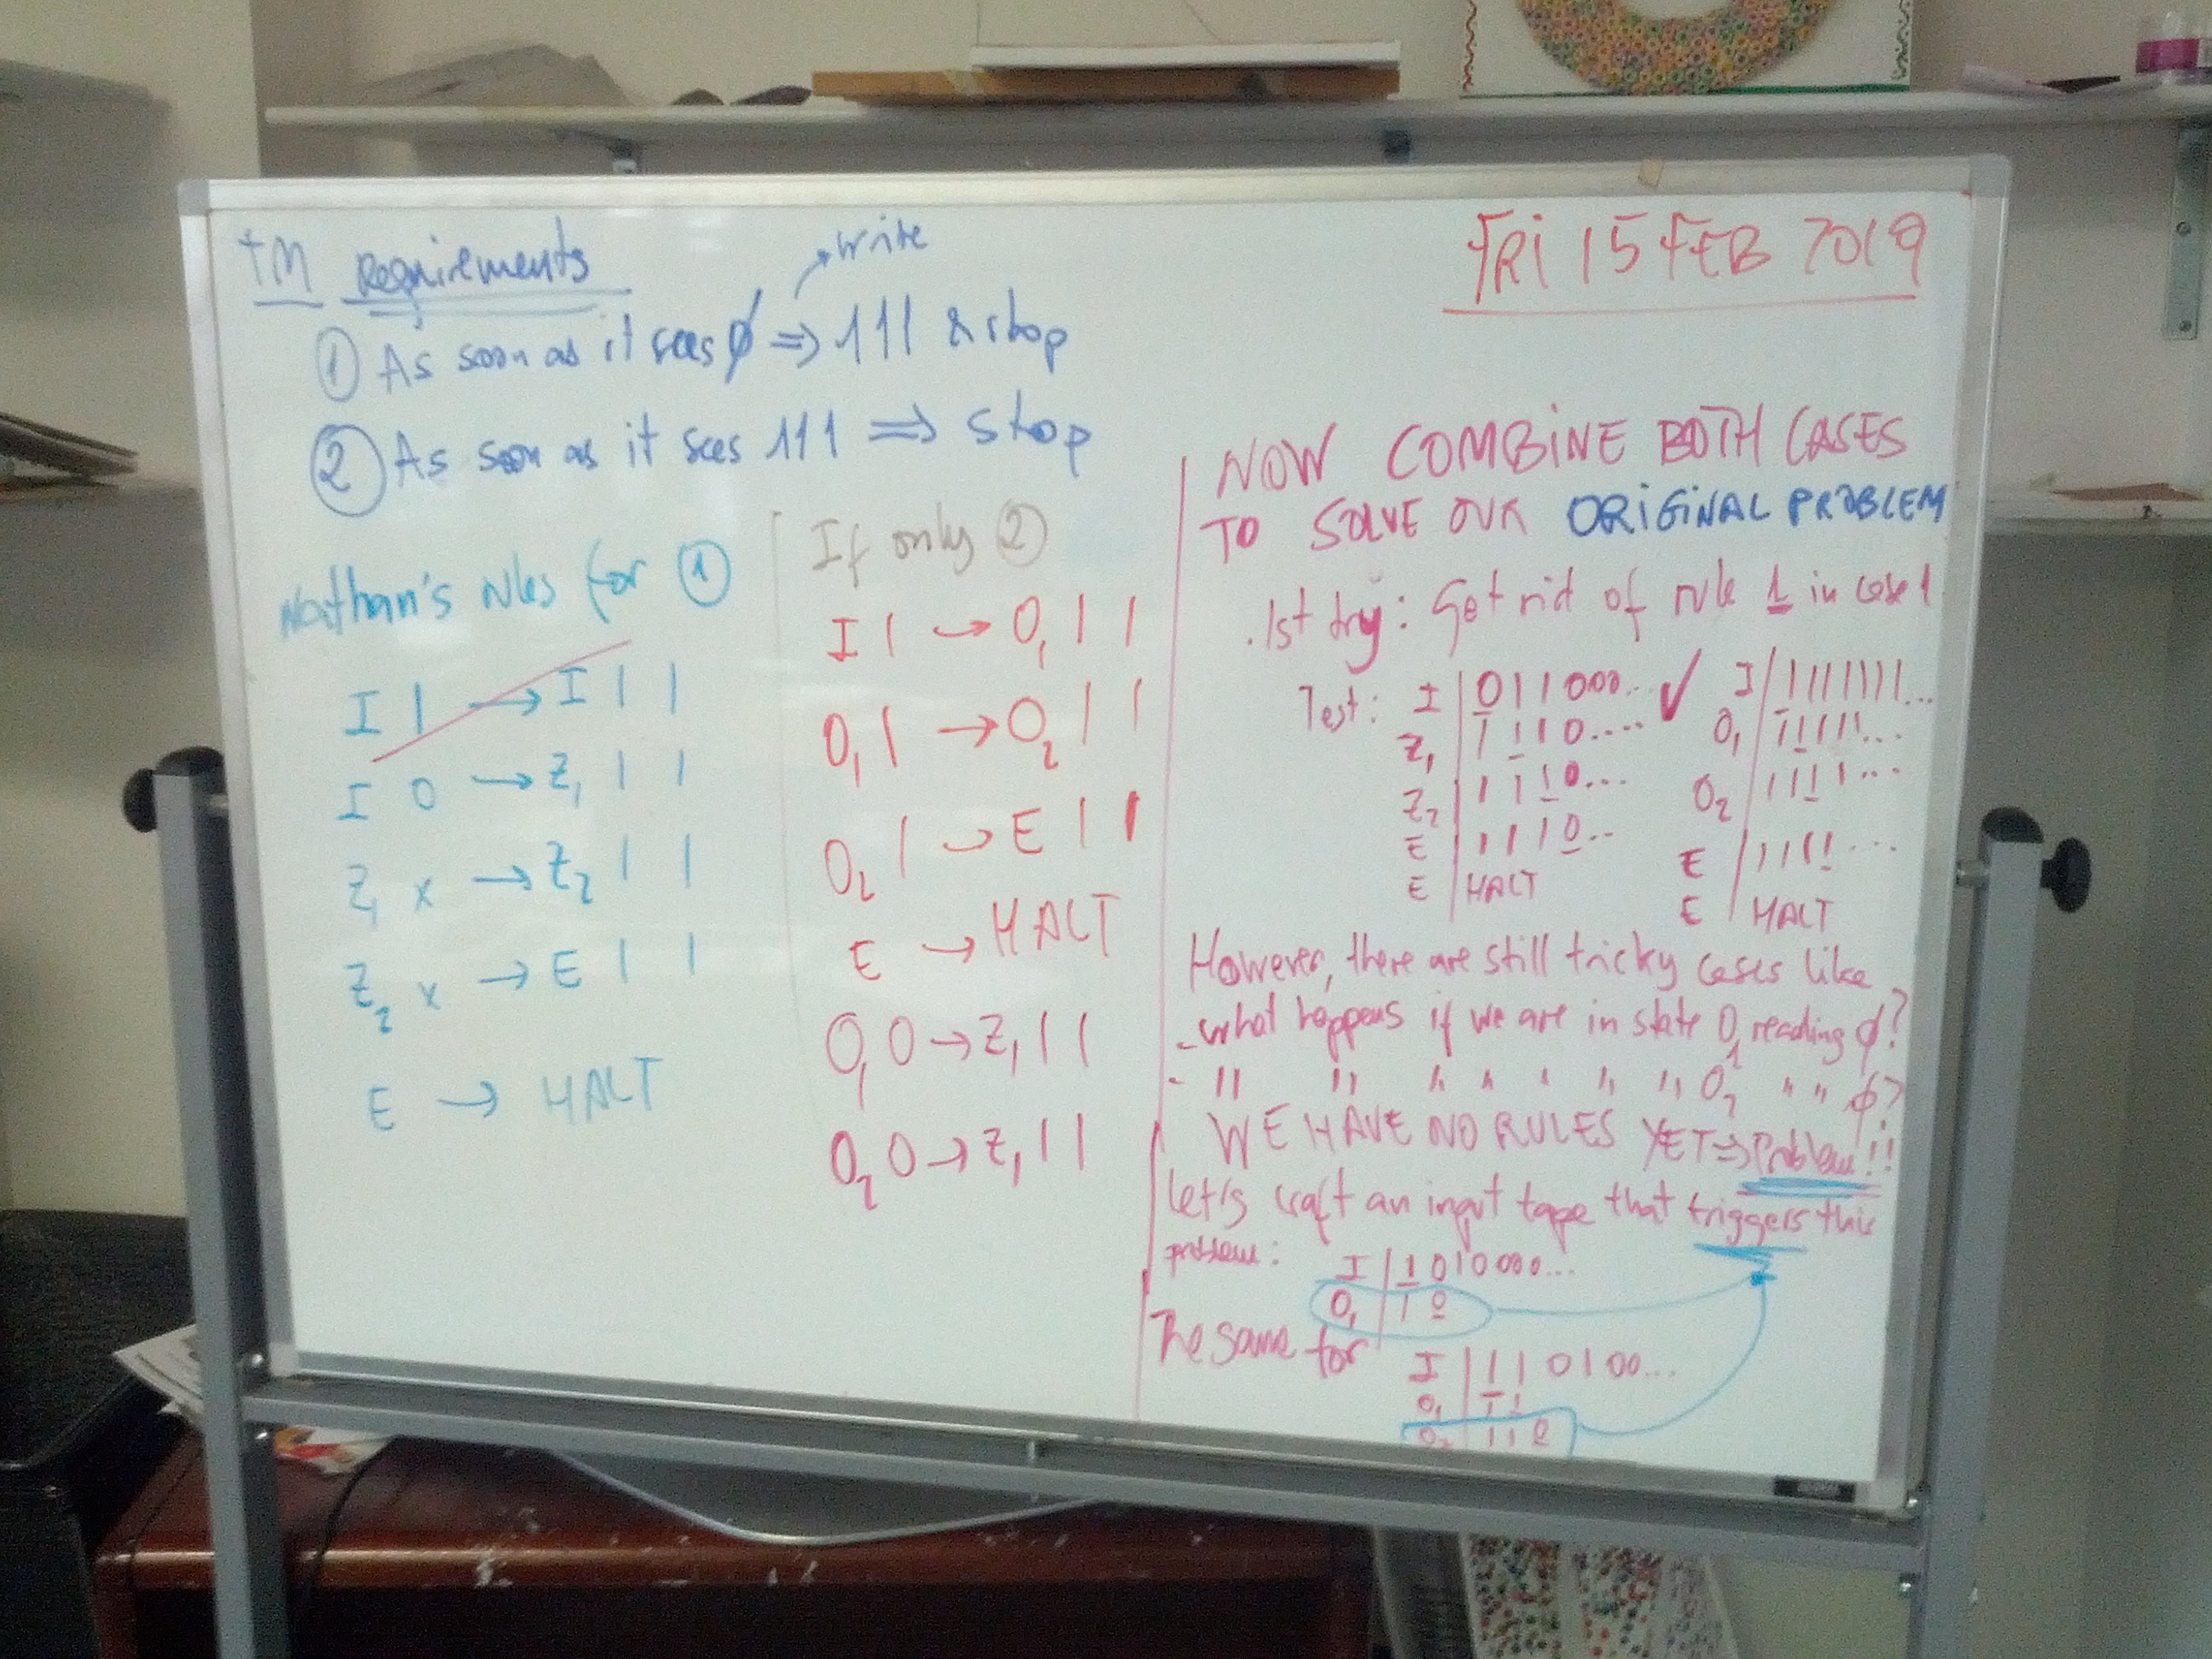 TM Requirements
write
① As soon as it sees ∅ ⇒ 111 & stop
② As soon as it sees 111 ⇒ stop
Nathan's rules for ①
I 1 → I 1 1
I 0 → Z₁ 1 1
Z₁ x → Z₂ 1 1
Z₂ x → E 1 1
E → HALT
If only ②
I 1 → O₁ 1 1
O₁ 1 → O₂ 1 1
O₂ 1 → E 1 1
E → HALT
O₁ 0 → Z₁ 1 1
O₂ 0 → Z₁ 1 1
FRI 15 FEB 2019
NOW COMBINE BOTH CASES
TO SOLVE OUR ORIGINAL PROBLEM
. 1st try: Get rid of rule 1 in case 1
Test: I | 011000.. ✓
Z₁ | 1110....
Z₂ | 1110...
E | 1110..
E | HALT
I | 1111111...
O₁ | 11111...
O₂ | 1111...
E | 1111...
E | HALT
However, there are still tricky cases like
- what happens if we are in state O₁ reading ∅?
- " " " " " " " O₂ " " ∅?
WE HAVE NO RULES YET ⇒ Problem!!
Let's craft an input tape that triggers this
problem: I | 1010000...
O₁ | 1 0
The same for
I | 1 1 0 1 00...
O₁ | 1 1
O₂ | 1 1 0